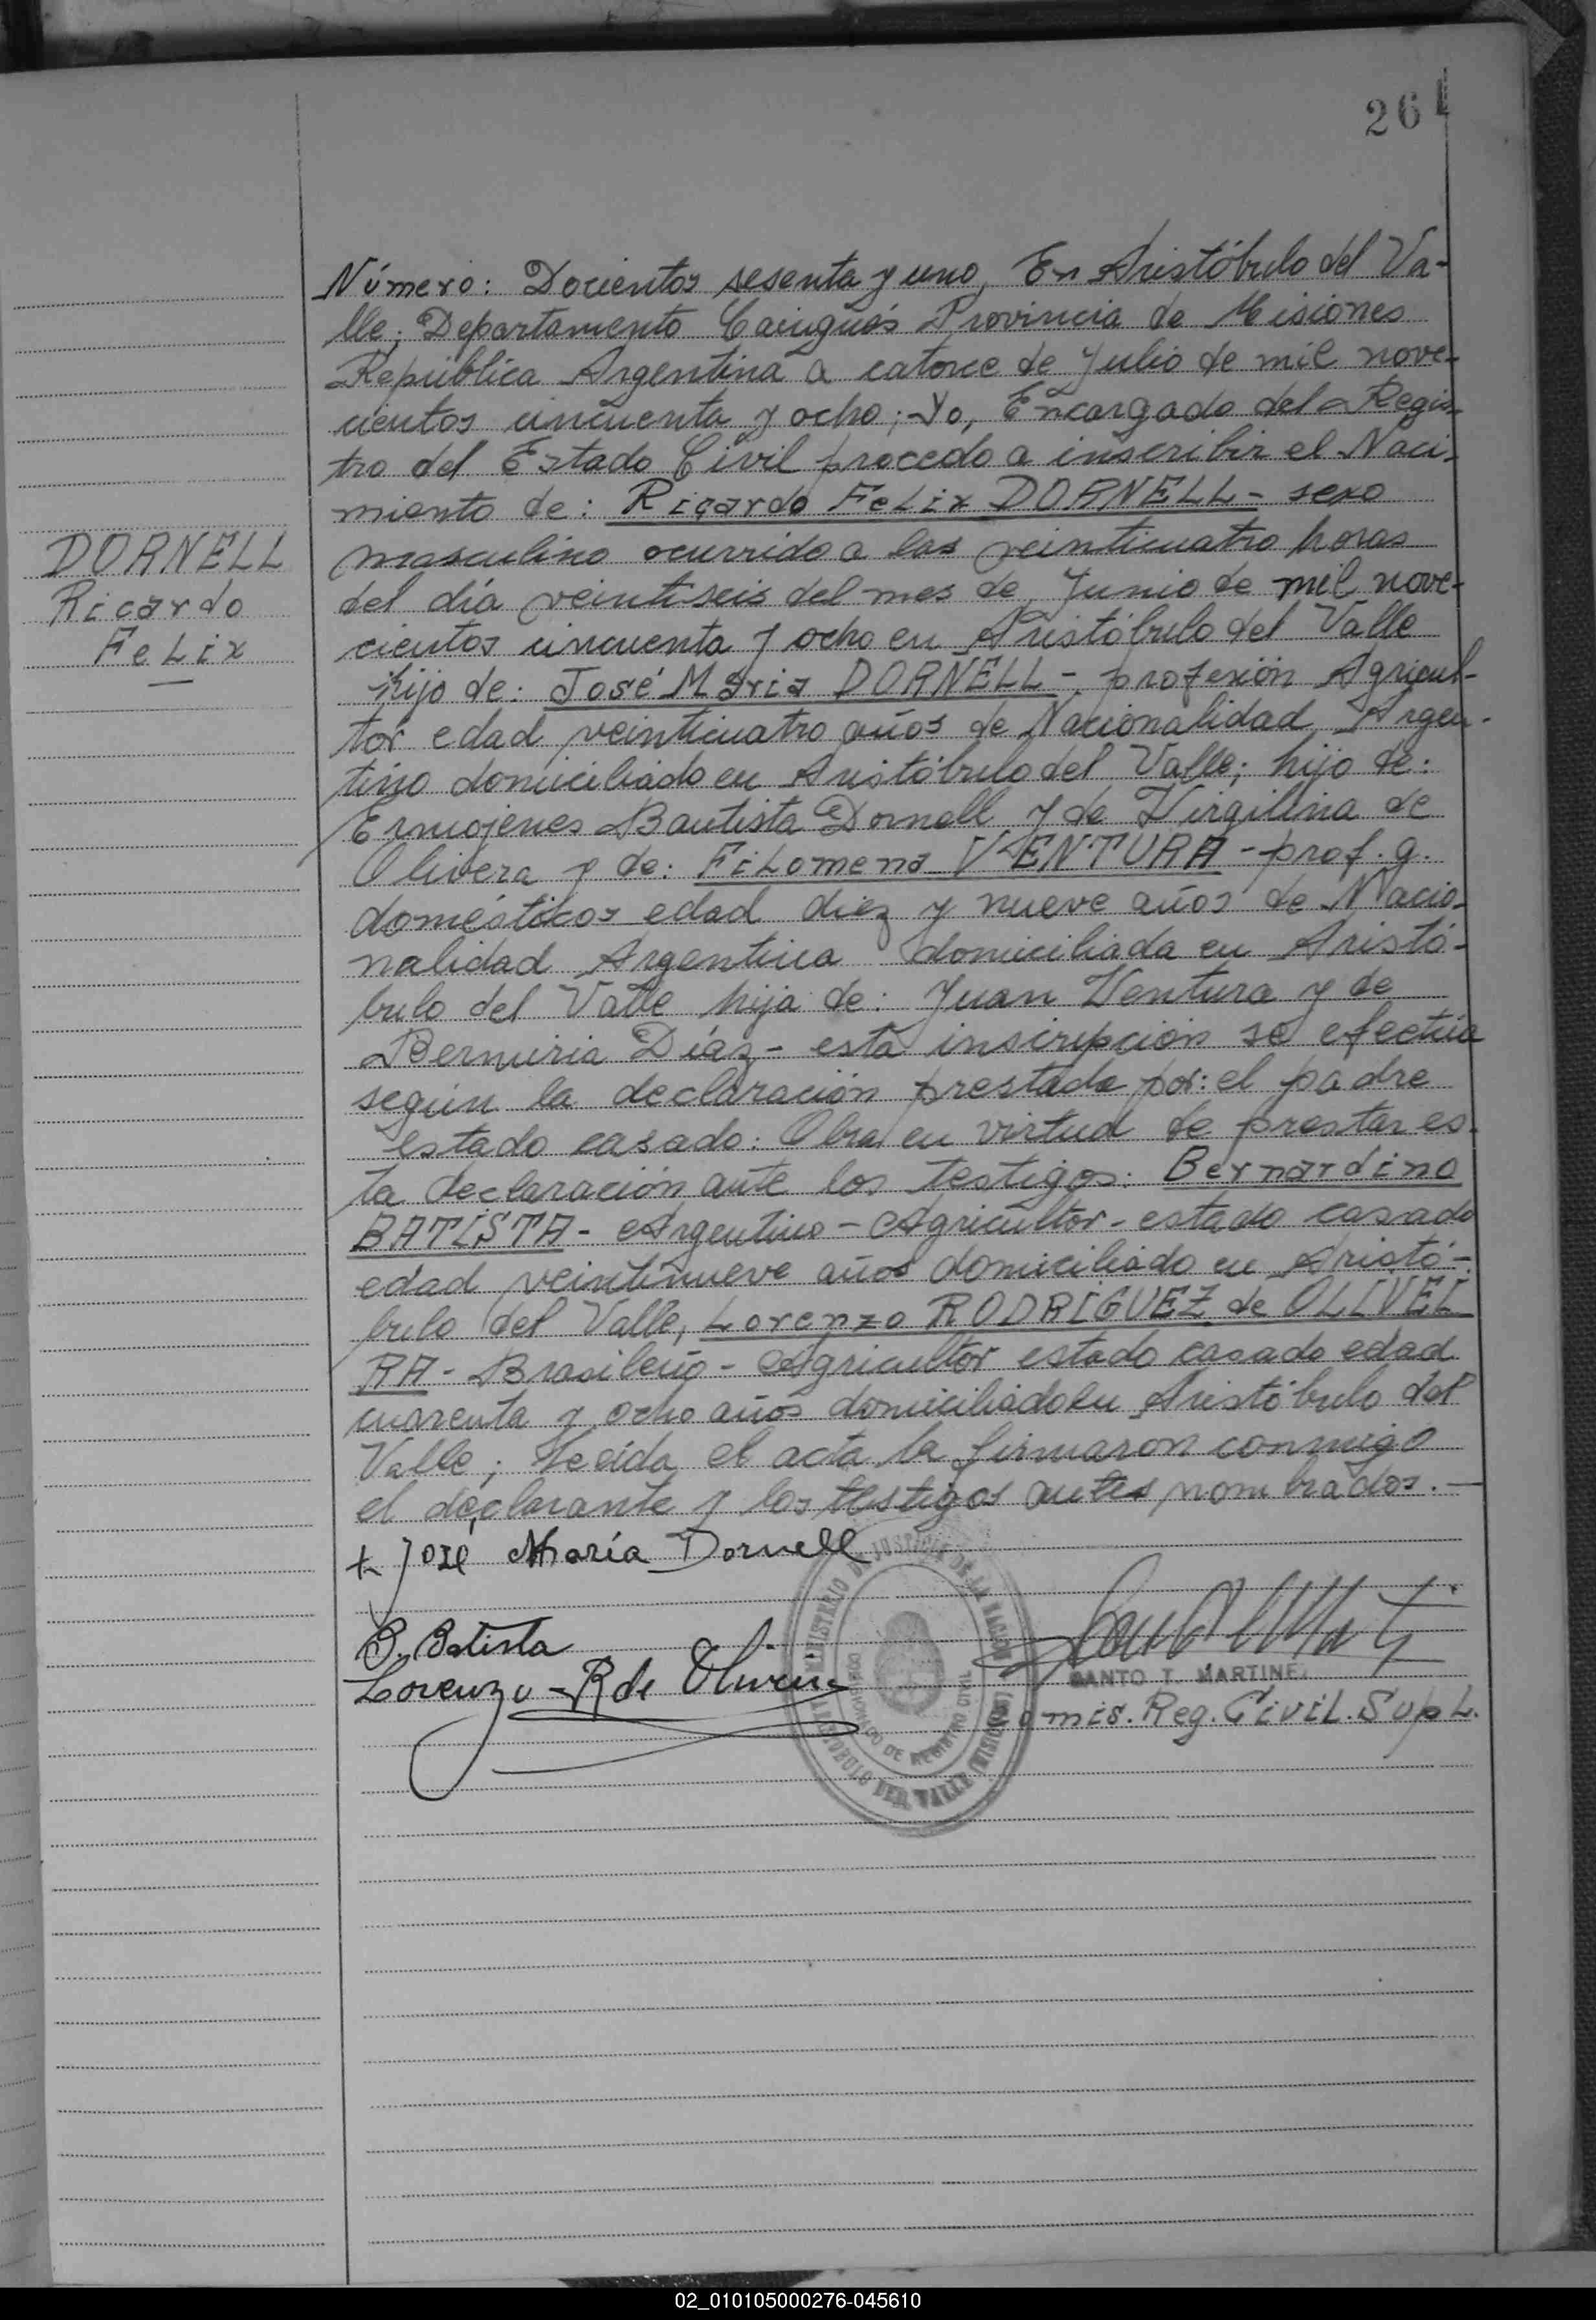 261
Número: Docientos sesenta y uno, En Aristóbulo del Va-
lle; Departamento Cainguás Provincia de Misiones
República Argentina a catorce de Julio de mil nove-
cientos cincuenta y ocho; Yo, Encargado del Regis-
tro del Estado Civil procedo a inscribir el Naci-
miento de: Ricardo FeLix DORNELL - sexo
masculino ocurrido a las veinticuatro horas
del día veintiseis del mes de Junio de mil nove-
cientos cincuenta y ocho en Aristóbulo del Valle
hijo de: José María DORNELL -, profesión Agricul-
tor edad veinticuatro años de Nacionalidad Argen-
tino domiciliado en Aristóbulo del Valle; hijo de:
Ermojenes Bautista Dornell y de Virgilina de
Olivera y de: FiLomena VENTURA - prof. q.
domésticos edad diez y nueve años de Nacio-
nalidad Argentina domiciliada en Aristó-
bulo del Valle hija de: Juan Ventura y de
Bermiria Díaz - esta inscripción se efectúa
según la declaración prestada por: el padre
estado casado. Obra en virtud de prestar es-
ta declaración ante los testigos: Bernardino
BATISTA - Argentino - Agricultor - estado casado
edad veintinueve años domiciliado en Aristó-
bulo del Valle, Lorenzo RODRIGUEZ de OLIVEI
RA - Brasileño - Agricultor estado casado edad
cuarenta y ocho años domiciliado en Aristóbulo del
Valle; Leída el acta la firmaron conmigo
el declarante y los testigos antes nombrados. —
DORNELL
Ricardo
FeLix
+ José María Dornell
B. Batista
Lorenzo R de Olivera
MINISTERIO DE JUSTICIA DE LA NACION
ARISTOBULO DEL VALLE (MISIONES)
DE REGISTRO CIVIL
SANTO T. MARTINEZ
Comis. Reg. CiviL. SupL.
02_010105000276-045610